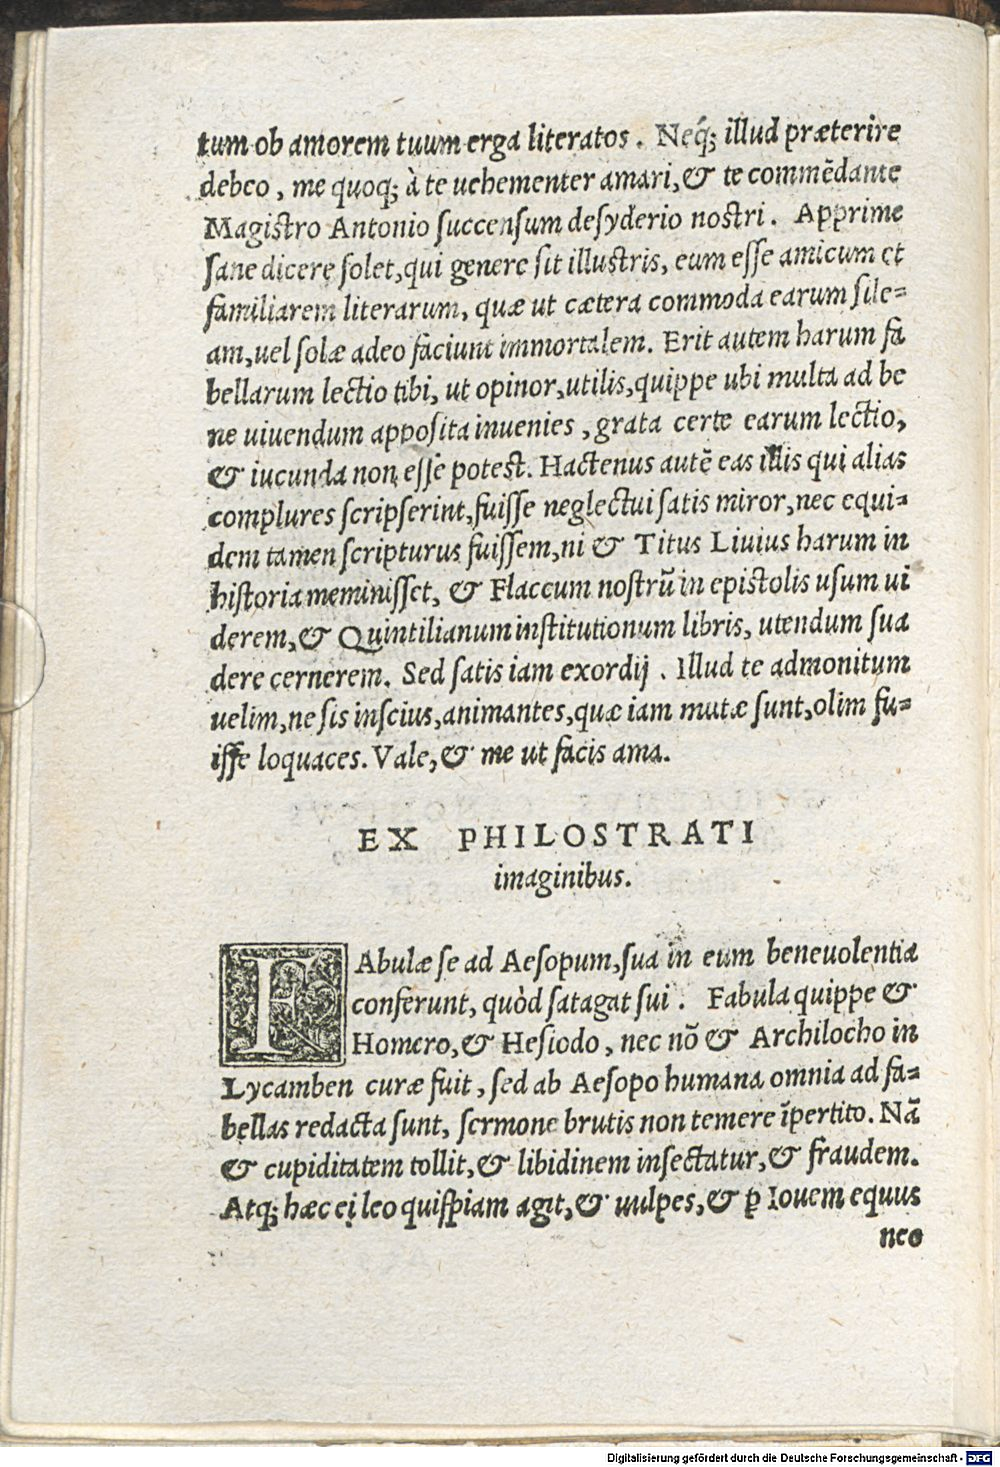 tum ob amorem tuum erga literatos. Neq́; illud præterire
debeo, me quoq; à te uehementer amari, & te commēdante
Magistro Antonio succensum desyderio nostri. Apprime
sane dicere solet, qui genere sit illustris, eum esse amicum et
familiarem literarum, quæ ut cætera commoda earum sile=
am, uel solæ adeo faciunt immortalem. Erit autem harum fa
bellarum lectio tibi, ut opinor, utilis, quippe ubi multa ad be
ne uiuendum apposita inuenies, grata certe earum lectio,
& iucunda non esse potest. Hactenus autē eas illis qui alias
complures scripserint, fuisse neglectui satis miror, nec equi=
dem tamen scripturus fuissem, ni & Titus Liuius harum in
historia meminisset, & Flaccum nostrū in epistolis usum ui
derem, & Quintilianum institutionum libris, utendum sua
dere cernerem. Sed satis iam exordij. Illud te admonitum
uelim, ne sis inscius, animantes, quæ iam mutæ sunt, olim fu=
isse loquaces. Vale, & me ut facis ama.
EX PHILOSTRATI
imaginibus.
FAbulæ se ad Aesopum, sua in eum beneuolentia
conferunt, quòd satagat sui. Fabula quippe &
Homero, & Hesiodo, nec nō & Archilocho in
Lycamben curæ fuit, sed ab Aesopo humana omnia ad fa=
bellas redacta sunt, sermone brutis non temere īpertito. Nā
& cupiditatem tollit, & libidinem insectatur, & fraudem.
Atq; hæc ei leo quispiam agit, & uulpes, & ꝑ Iouem equus
nec
Digitalisierung gefördert durch die Deutsche Forschungsgemeinschaft - DFG